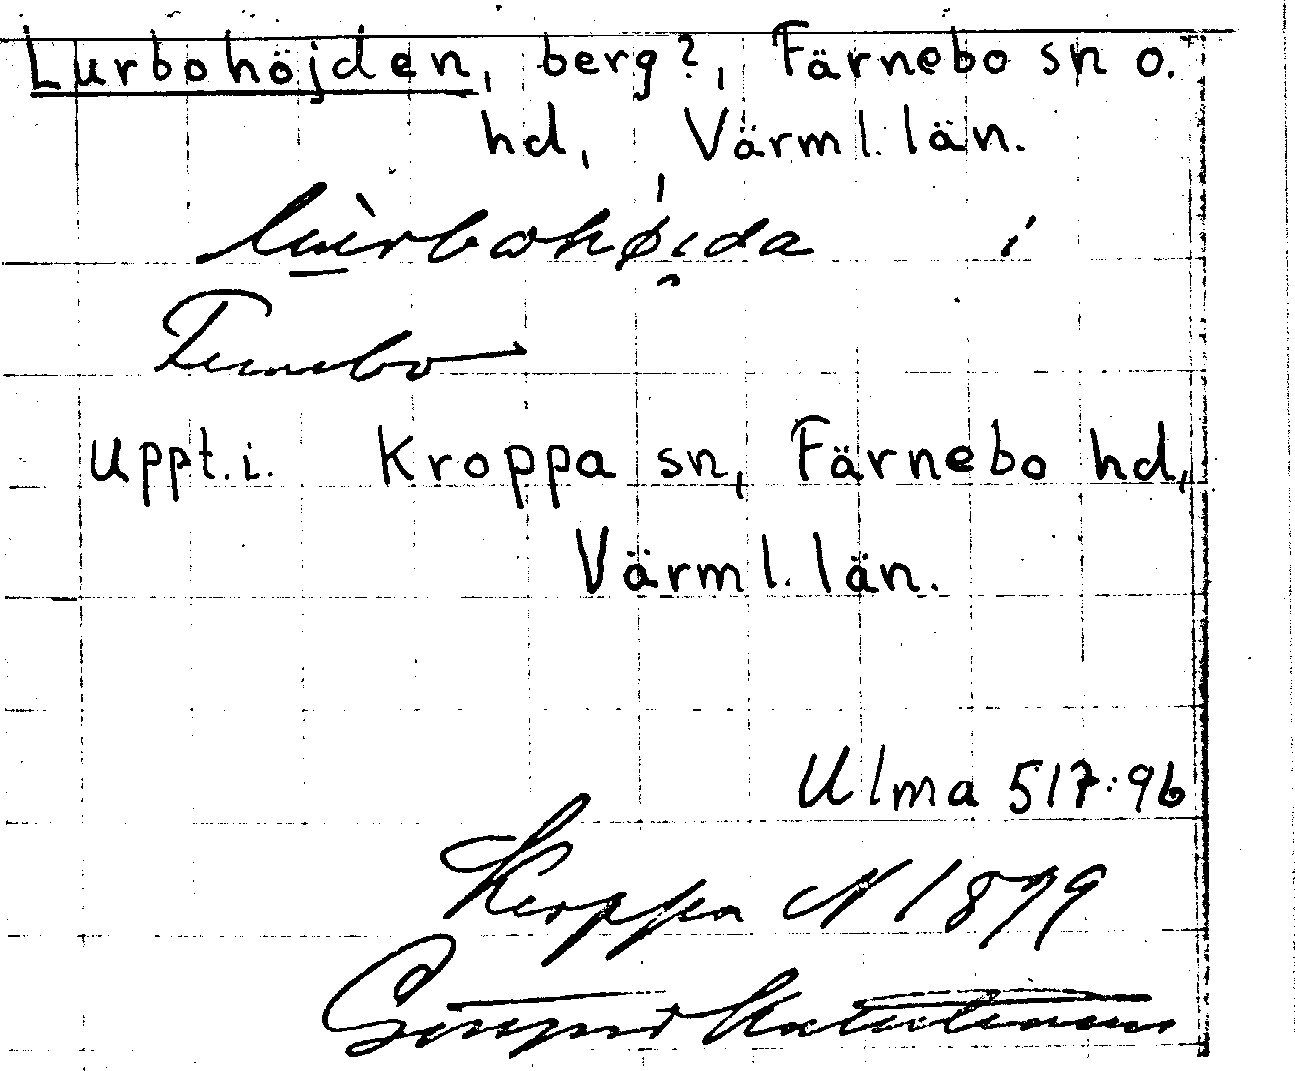 Lurbohöjden, berg?, Färnebo sn o.
hd, Värml. län.
i
Fernebo
Uppt. i. Kroppa sn, Färnebo hd,
Värml. län.
Ulma 517:96
Kroppa N 1879